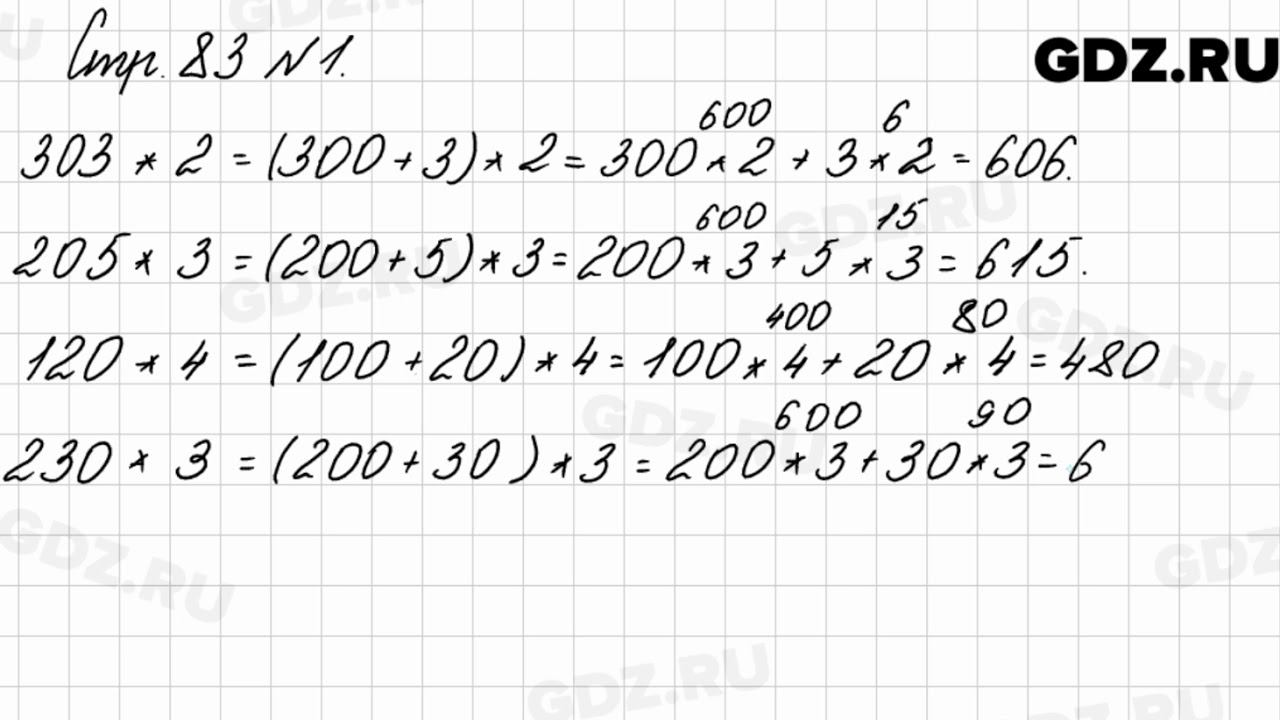 Стр. 83 №1.
GDZ.RU
600 6
303 * 2 = (300 + 3) * 2 = 300 * 2 + 3 * 2 = 606.
600 15
205 * 3 = (200 + 5) * 3 = 200 * 3 + 5 * 3 = 615.
400 80
120 * 4 = (100 + 20) * 4 = 100 * 4 + 20 * 4 = 480
600 90
230 * 3 = (200 + 30) * 3 = 200 * 3 + 30 * 3 = 6